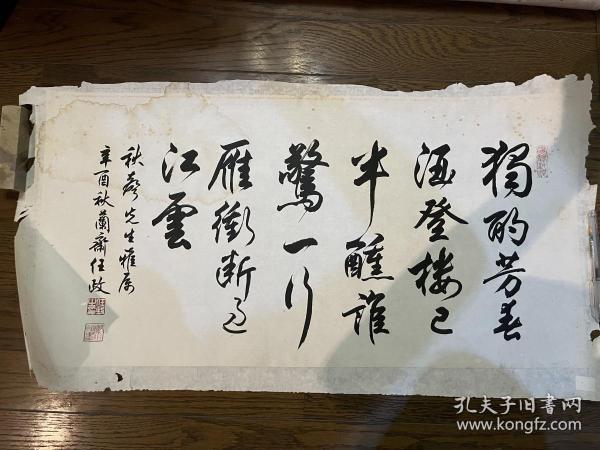 獨酌芳春
酒登樓已
半醺誰
驚一行
雁衝断過
江雲
秋先生雅属
辛酉秋蘭齋任政
孔夫子旧书网
www.kongfz.com